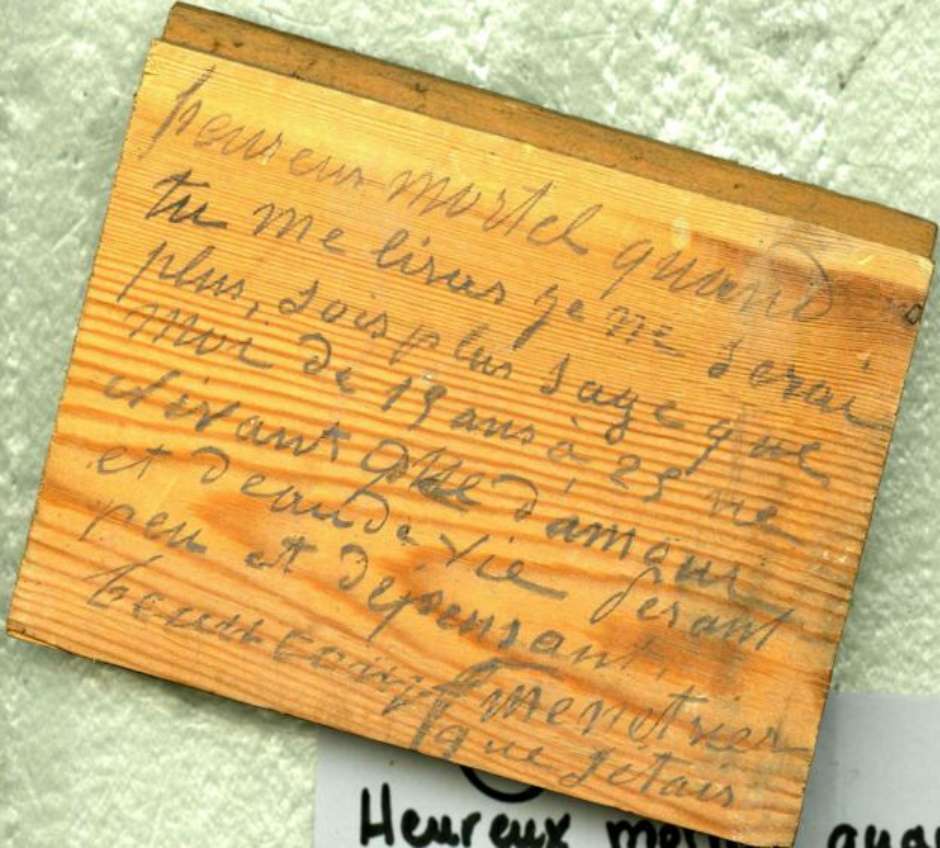 heureux mortel quand
tu me liras je ne serai
plus, sois plus sage que
moi de 19 ans à 25 ne
vivant que d'amour
et d'eau de vie fesant
peu et depensant
beaucoup menetrier
que jetais
Heureux